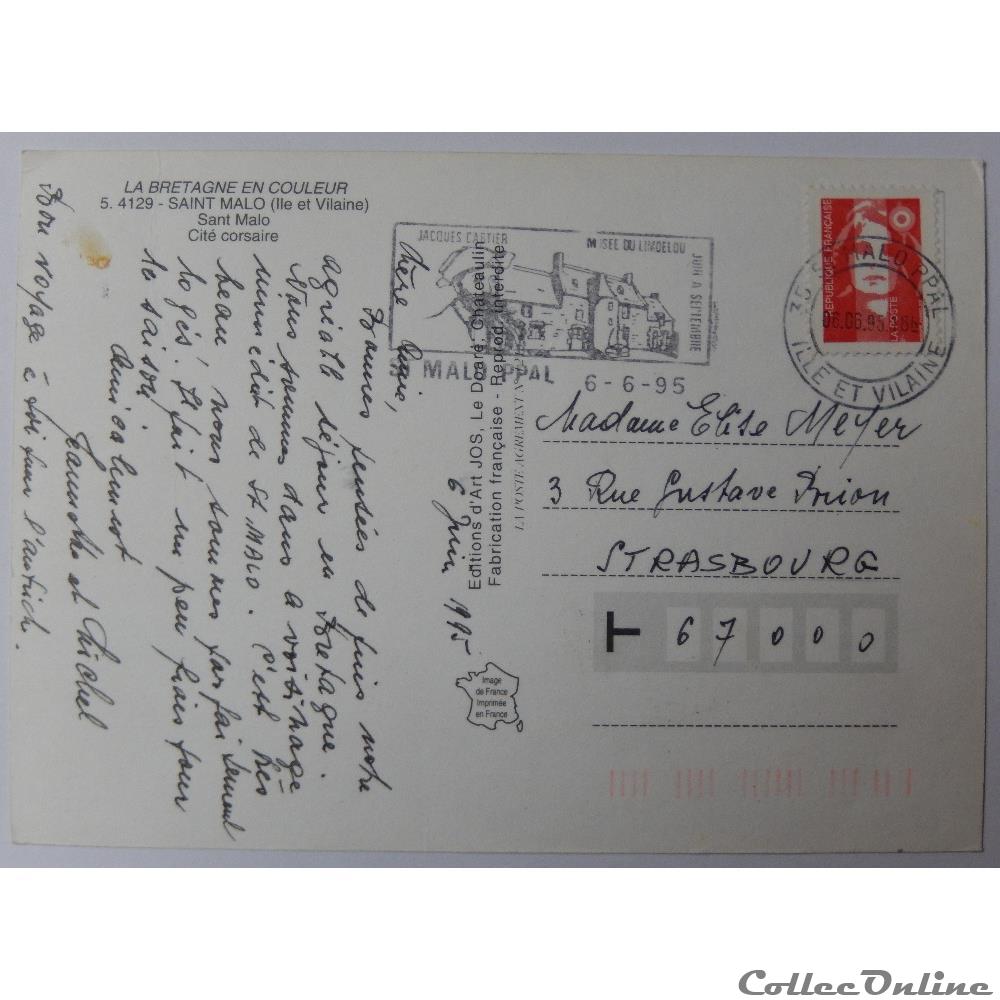 LA BRETAGNE EN COULEUR
5. 4129 - SAINT MALO (Ile et Vilaine)
Sant Malo
Cité corsaire
JACQUES CARTIER MUSEE DU LIMOELOU
JUIN A SEPTEMBRE
ST MALO PPAL 6-6-95
REPUBLIQUE FRANÇAISE
LA POSTE
35 ST MALO PPAL
06.06.95
ILLE ET VILAINE
6 Juin 1995
Chère
Bonnes pensées de notre
agréable séjour en Bretagne.
Nous sommes dans le voisinage
immédiat de St. MALO. C'est très
beau, nous sommes parfaitement
logés. Il fait un peu frais pour
la saison
Amicalement
et Michel
Bon voyage à l'autriche.
Editions d'Art JOS, Le Doaré, Chateaulin
Fabrication française - Reprod. interdite
LA POSTE AGREMENT N°
Madame Elise Meyer
3 Rue Gustave Brion
STRASBOURG
T 67000
Image
de France
Imprimée
en France
CollecOnline